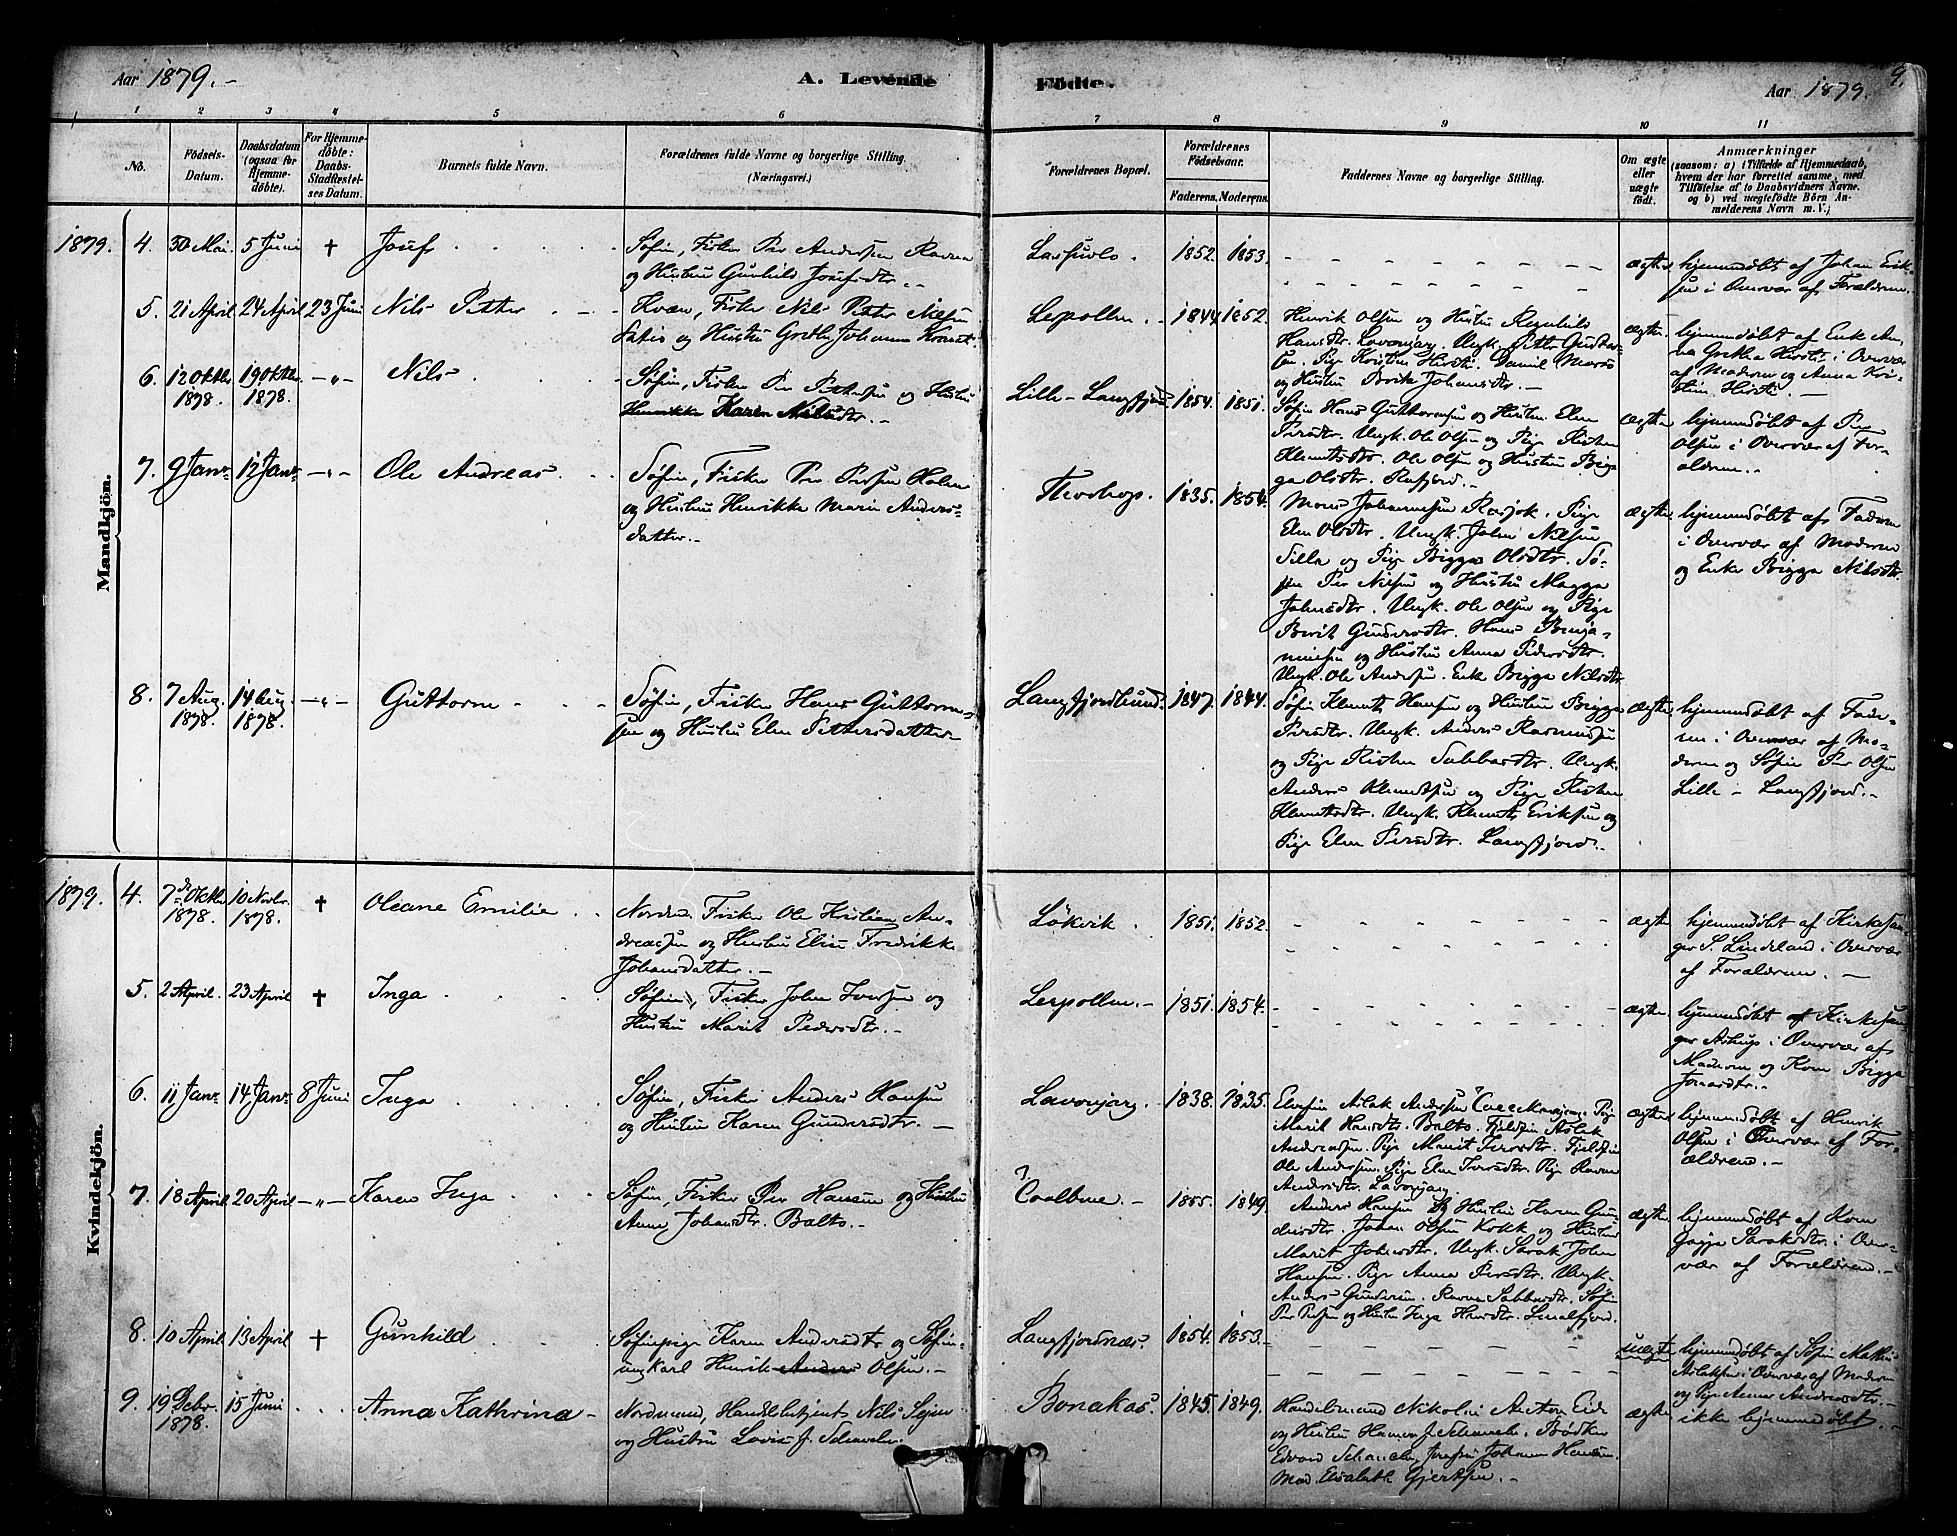 Aar 1879.-
A. Levende
Födte.
Aar 1879.
9.
1
2
3
4
5
6
7
8
9
10
11
No.
Födsels-
Datum.
Daabsdatum
(ogsaa for
Hjemme-
døbte).
For Hjemme-
døbte:
Daabs-
Stadfæstel-
ses Datum.
Barnets fulde Navn.
Forældrenes fulde Navne og borgerlige Stilling.
(Næringsvei.)
Forældrenes Bopæl.
Forældrenes
Födselsaar.
Faderens.
Moderens.
Faddernes Navne og borgerlige Stilling.
Om ægte
eller
uægte
født.
Anmærkninger
(saasom: a) i Tilfælde af Hjemmedaab,
hvem der har forrettet samme, med
Tilføielse af to Daabsvidners Navne.
og b) ved uægtefødte Börn An-
melderens Navn m. V.)
Mandkjön.
1879. 4. 30 Mai. 5 Juni + Josef
Søfin, Fisker Per Andersen Ravna
og Hustru Gunhild Josefsdtr.
1852. 1853.
ægte. hjemmedøbt af Johan Erik-
sen i Overvær af Forældrene.
5. 21 April 24 April 23 Juni Nils Petter
Kvæn, Fisker Nils Petter Nilsen
og Hustru Grethe Johanna
Lerpollen. 1844 1852.
Henrik Olsen og Hustru Ragnhild
Hansdtr. Lavonjarg. Ungk. Petter
Pige Kristine Hirsti. Daniel
og Hustru Brita Johansdtr.
ægte. hjemmedøbt af Enke An-
na Gretha Hirsti i Overvær
af Moderen og Anna Kri-
stine Hirsti.
6. 12 Oktbr. 1878. 19 Oktbr. 1878. -"- Nils
Søfin, Fisker Per Pettersen og Hustru
Henrikke Karen Nilsdtr.
Lille-Langfjord 1854. 1851.
Søfin Hans Guttormsen og Hustru Elen
Persdtr. Ungk. Ole Olsen og Pige Kirsten
Klemetsdtr. Ole Olsen og Hustru Big-
ga Olsdtr.
ægte. hjemmedøbt af Per
Olsen i Overvær af For-
ældrene.
7. 9 Janr. 12 Janr. -"- Ole Andreas
Søfin, Fisker Per Persen
og Hustru Henrikke Marie Anders-
datter.
1835. 1854.
Mons Johannesen Pige
Elen Olsdtr. Ungk. John Nilsen
og Pige Bigga Olsdtr. Sø-
fin Per Nilsen og Hustru Magga
Johnsdtr. Ungk. Ole Olsen og Pige
Berit Gundersdtr. Hans Benja-
minsen og Hustru Anna Pedersdtr.
Ungk. Ole Andersen. Enke Bigga Nilsdtr.
ægte. hjemmedøbt af Faderen
i Overvær af Moderen
og Enke Bigga Nilsdtr.
8. 7 Aug. 1878. 14 Aug. 1878. -"- Guttorm
Søfin, Fisker Hans Guttorm-
sen og Hustru Elen Pettersdatter.
Langfjordbund. 1847. 1844.
Søfin Klemet Hansen og Hustru Bigga
Persdtr. Ungk. Anders Rasmussen
og Pige Kirsten Sabbasdtr. Ungk.
Anders Klemetsen og Pige Kirsten
Klemetsdtr. Ungk. Klemet Eriksen og
Pige Elen Persdtr. Langfjord.
ægte. hjemmedøbt af Fade-
ren i Overvær af Mo-
deren og Søfin Per Olsen
Lille-Langfjord.
Kvindekjön.
1879. 4. 7de Oktbr. 1878. 10 Novbr. 1878. + Oleane Emilie
Nordm. Fisker Ole Kristian An-
dreassen og Hustru Elise Fredrikke
Johansdatter.
Løkvik. 1851. 1852.
ægte. hjemmedøbt af Kirkesan-
ger S. Lindeland i Overvær
af Forældrene.
5. 2 April. 23 April + Inga
Søfin, Fisker John Iversen og
Hustru Marit Pedersdtr.
Lerpollen. 1851. 1854.
ægte. hjemmedøbt af Kirkesan-
ger i Overvær af
Moderen og Kone Bigga
6. 11 Janr. 14 Janr. 8 Juni Inga
Søfin, Fisker Anders Hansen
og Hustru Karen Gundersdtr.
Lavonjarg. 1838. 1835.
Aslak Andersen Pige
Marit Hansdtr. Balto. Fjeldfin Aslak
Andersen. Pige Marit Iversdtr. Fjeldfin
Ole Andersen. Pige Elen Iversdtr. Pige Ravna
Andersdtr. Lavonjarg.
ægte. hjemmedøbt af Henrik
Olsen i Overvær af For-
ældrene.
7. 18 April 20 April -"- Karen Inga
Søfin, Fisker Per Hansen og Hustru
Anne Johansdtr. Balto.
1855. 1849.
Anders Hansen og Hustru Karen Gun-
dersdtr. Johan Olsen Kokk og Hustru
Marit Johnsdtr. Ungk. Sarak John
Hansen. Pige Anna Persdtr. Ungk.
Anders Gundersen. Ravna Sabbasdtr. Søfin
Per Persen og Hustru Inga Hansdtr. Smalfjord.
ægte. hjemmedøbt af Kone
Gagga Saraksdtr. i Over-
vær af Forældrene.
8. 10 April 13 April + Gunhild
Søfinpige Karen Andersdtr og Søfin-
ungkarl Henrik Anders Olsen.
Langfjordnæs. 1854. 1853.
uægte hjemmedøbt af Søfin Mathis
Aslaksen i Overvær af Moderen
og Pige Anna Andersdtr.
9. 19 Decbr. 1878. 15 Juni Anna Kathrina
Nordmand, Handelsbetjent Nils
og Hustru Lovise J. Schanche.
Bonakas. 1845. 1849.
Handelsmand Nikolai Anton Eide
og Hustru Hanna J. Schanche. Bødker
Edvard Schanche, Johanna Hansen
Mad. Elisabeth Gjertsen.
ægte ikke hjemmedøbt.